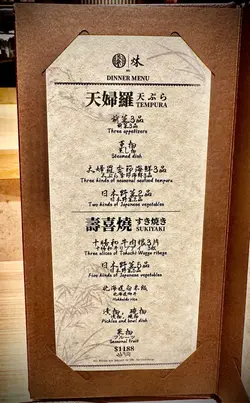 DINNER MENU
天婦羅 天ぷら
TEMPURA
前菜3品
前菜3品
Three appetizers
蒸物
蒸し物
Steamed dish
天婦羅季節海鮮3品
天ぷら季節海鮮3品
Three kinds of seasonal seafood tempura
日本野菜2品
日本野菜2品
Two kinds of Japanese vegetables
壽喜燒 すき焼き
SUKIYAKI
十勝和牛肉眼3片
十勝和牛リブアイ 3枚
Three slices of Tokachi Wagyu ribeye
日本野菜5品
日本野菜5品
Five kinds of Japanese vegetables
北海道白米飯
Hokkaido rice
漬物、碗物
漬物、碗物
Pickles and bowl dish
菓物
フルーツ
Seasonal fruit
$1188